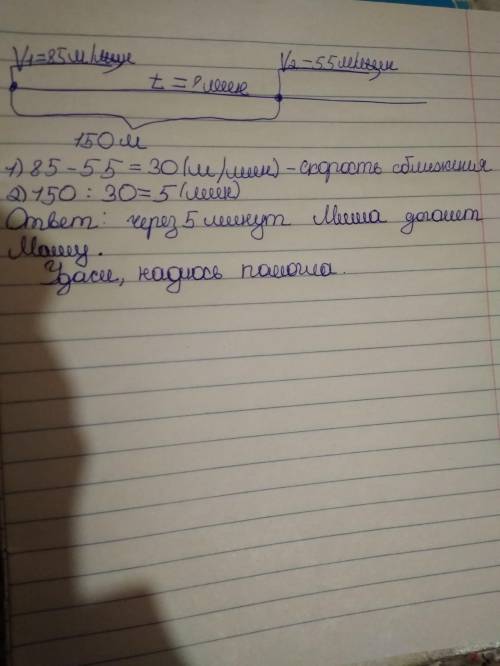 V₁=85м/мин V₂-55м/мин
t = ? мин
150м
1) 85-55=30(м/мин)-скорость сближения
2) 150:30=5(мин)
Ответ: через 5 минут Миша догонет
Машу.
Удачи, надюсь помогла.